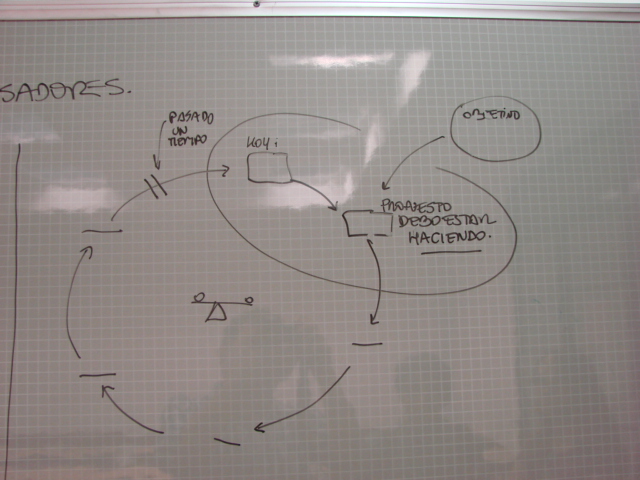 SADORES.
PASADO
UN
TIEMPO
HOY:
OBJETIVO
PARA ESTO
DEBO ESTAR
HACIENDO.